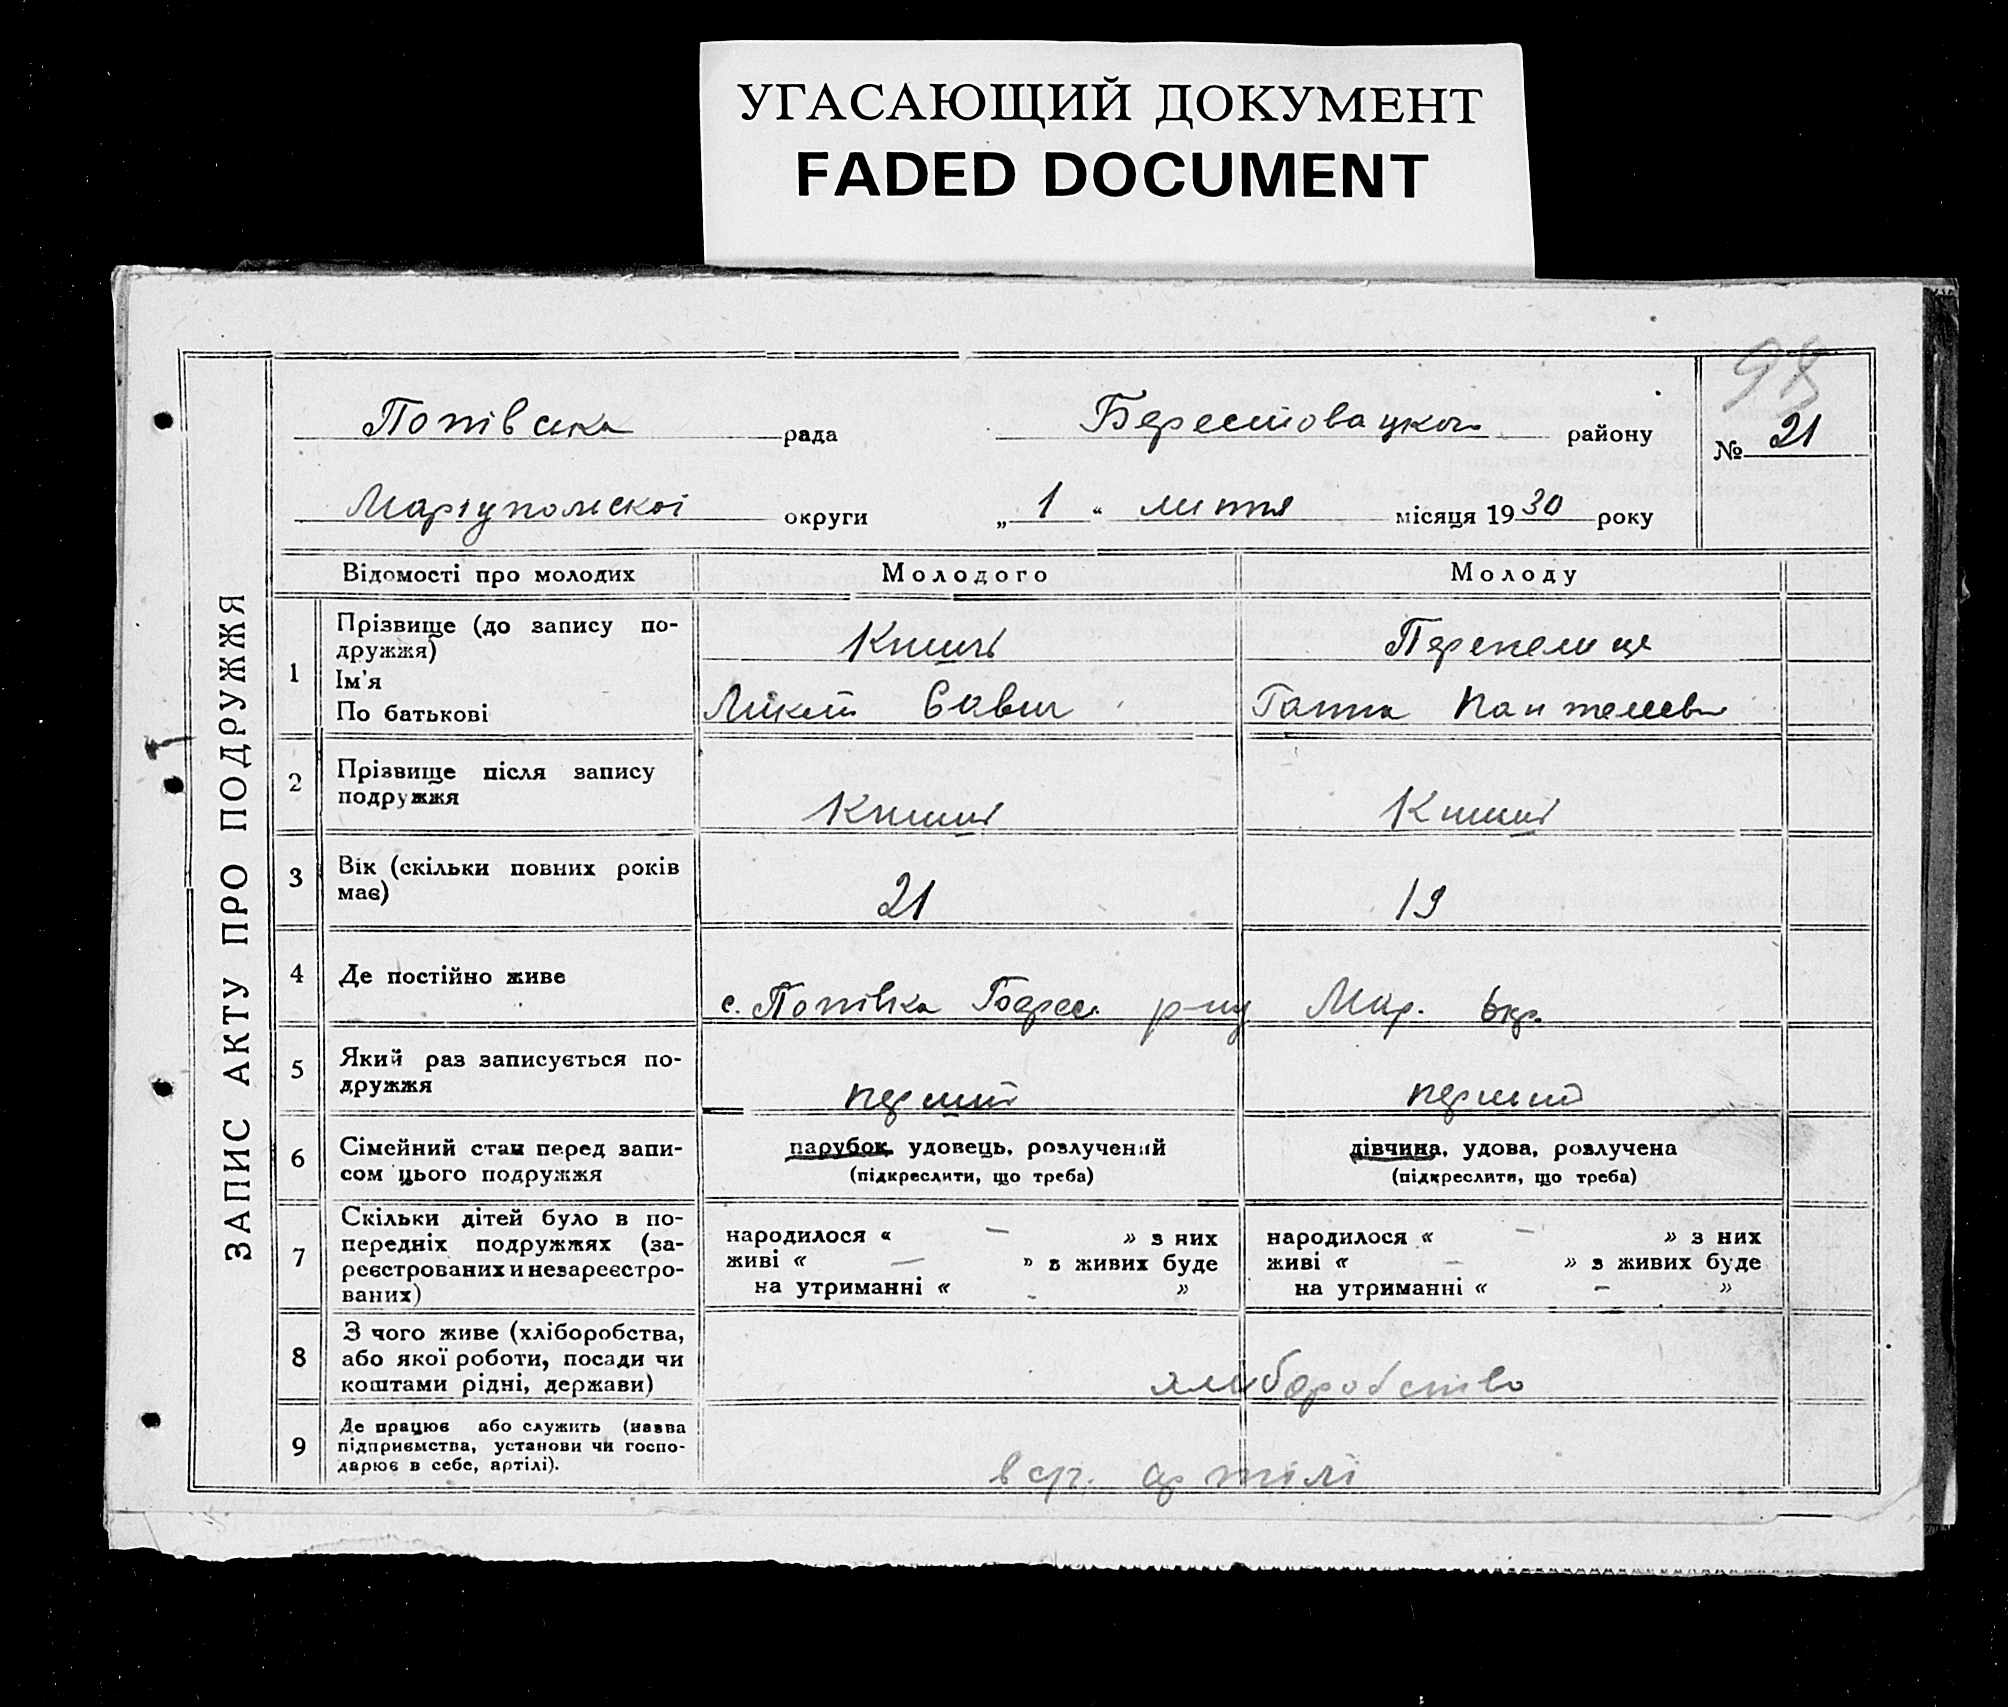 УГАСАЮЩИЙ ДОКУМЕНТ
FADED DOCUMENT
98
ЗАПИС АКТУ ПРО ПОДРУЖЖЯ
Попівська рада Берестовацького району № 21
Маріупольскої округи „ 1 “ липня місяця 1930 року
Відомості про молодих Молодого Молоду
1 Прізвище (до запису по-
дружжя) Книш Перепелиця
Ім'я
По батькові Микит Савич Ганна Пантелеев
2 Прізвище після запису
подружжя Книш Книш
3 Вік (скільки повних років
має) 21 19
4 Де постійно живе с. Попівка Берес. р-ну Мар. окр.
5 Який раз записується по-
дружжя перший перший
6 Сімейний стан перед запи-
сом цього подружжя
парубок, удовець, розлучений
(підкреслити, що треба)
дівчина, удова, розлучена
(підкреслити, що треба)
7 Скільки дітей було в по-
передніх подружжях (за-
реєстрованих и незареєстро-
ваних)
народилося « — » з них
живі « — » з живих буде
на утриманні « - »
народилося « — » з них
живі « — » з живих буде
на утриманні « – »
8 З чого живе (хліборобства,
або якої роботи, посади чи
коштами рідні, держави)
хлиборобство
9 Де працює або служить (назва
підприємства, установи чи госпо-
дарює в себе, артілі).
в с.г. артілі